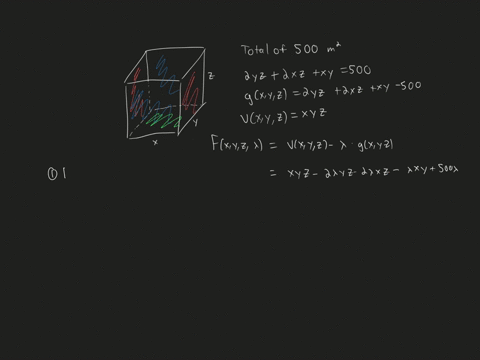 Total of 500 m²
2yz + 2xz + xy = 500
g(x,y,z) = 2yz + 2xz + xy - 500
V(x,y,z) = xyz
z
y
x
F(x,y,z,λ) = V(x,y,z) - λ · g(x,y,z)
① |
= xyz - 2λyz - 2λxz - λxy + 500λ